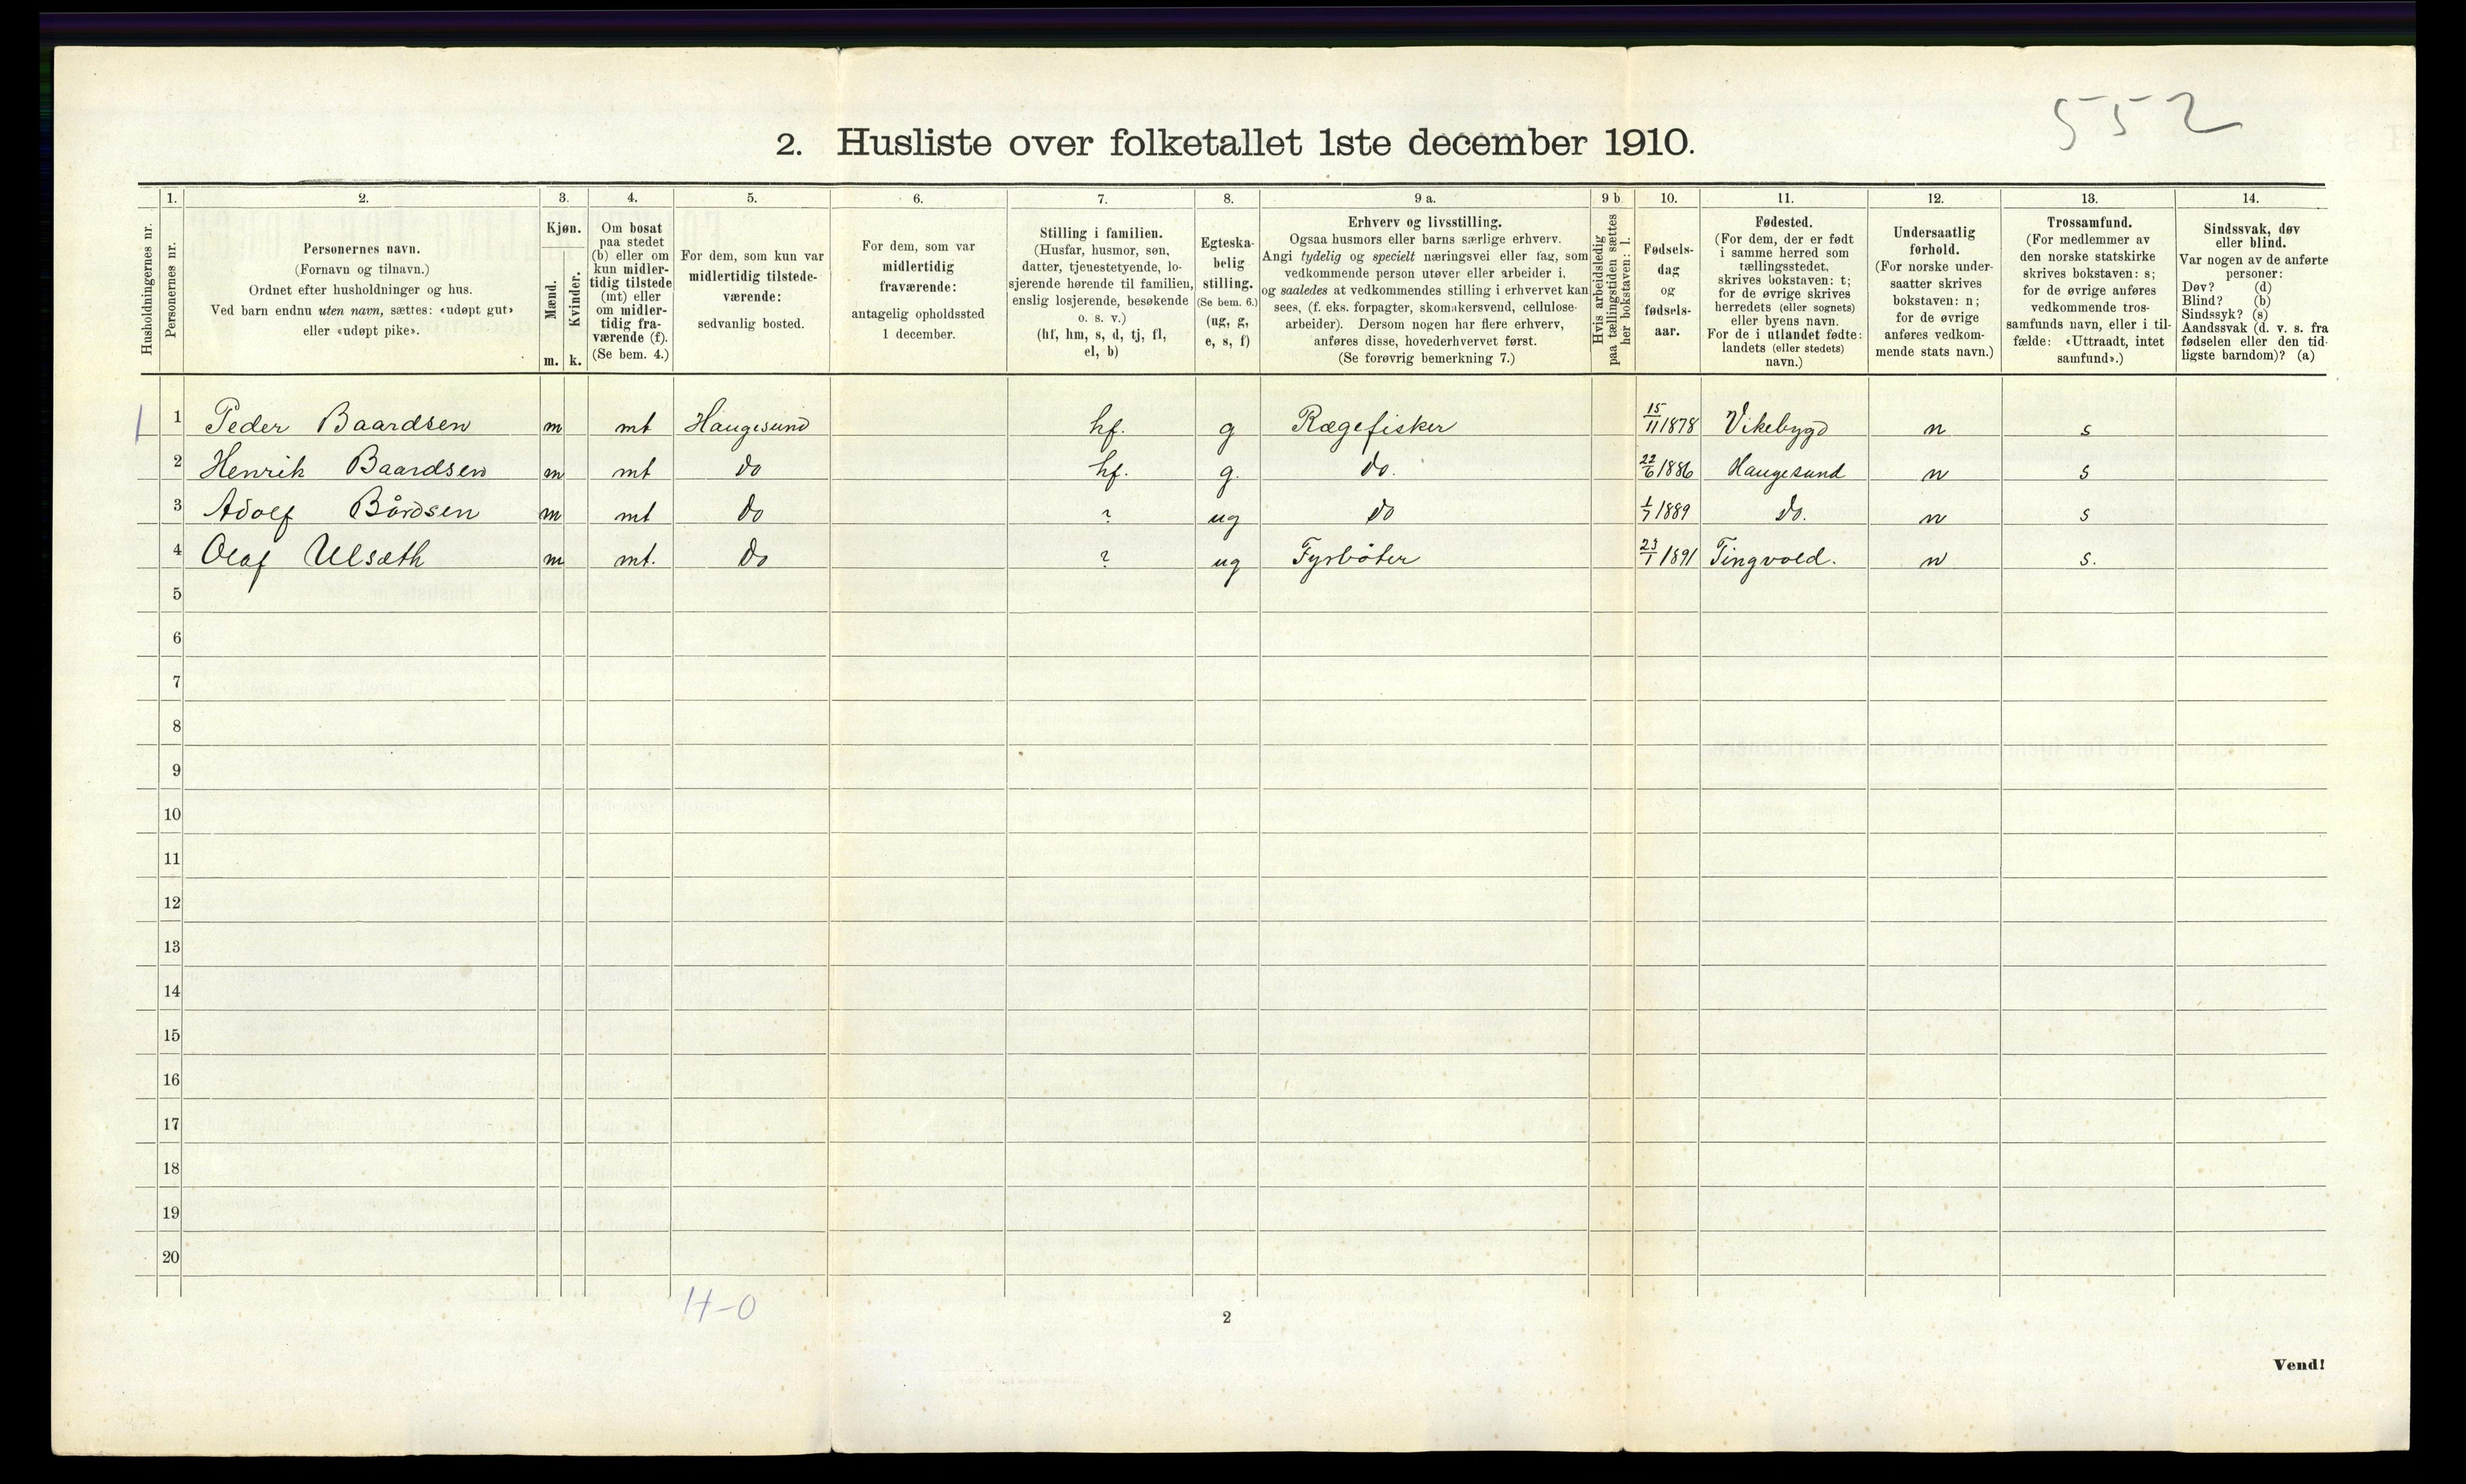 552
2. Husliste over folketallet 1ste december 1910.
1. 2. 3. 4. 5. 6. 7. 8. 9 a. 9 b 10. 11. 12. 13. 14.
Husholdningernes nr.
Personernes nr.
Personernes navn.
(Fornavn og tilnavn.)
Ordnet efter husholdninger og hus.
Ved barn endnu uten navn, sættes: «udøpt gut»
eller «udøpt pike».
Kjøn.
Mænd.
Kvinder.
m. k.
Om bosat
paa stedet
(b) eller om
kun midler-
tidig tilstede
(mt) eller
om midler-
tidig fra-
værende (f).
(Se bem. 4.)
For dem, som kun var
midlertidig tilstede-
værende:
sedvanlig bosted.
For dem, som var
midlertidig
fraværende:
antagelig opholdssted
1 december.
Stilling i familien.
(Husfar, husmor, søn,
datter, tjenestetyende, lo-
sjerende hørende til familien,
enslig losjerende, besøkende
o. s. v.)
(hf, hm, s, d, tj, fl,
el, b)
Egteska-
belig
stilling.
(Se bem. 6.)
(ug, g,
e, s, f)
Erhverv og livsstilling.
Ogsaa husmors eller barns særlige erhverv.
Angi tydelig og specielt næringsvei eller fag, som
vedkommende person utøver eller arbeider i,
og saaledes at vedkommendes stilling i erhvervet kan
sees, (f. eks. forpagter, skomakersvend, cellulose-
arbeider). Dersom nogen har flere erhverv,
anføres disse, hovederhvervet først.
(Se forøvrig bemerkning 7.)
Hvis arbeidsledig
paa tællingstiden sættes
her bokstaven: l.
Fødsels-
dag
og
fødsels-
aar.
Fødested.
(For dem, der er født
i samme herred som
tællingsstedet,
skrives bokstaven: t;
for de øvrige skrives
herredets (eller sognets)
eller byens navn.
For de i utlandet fødte:
landets (eller stedets)
navn.)
Undersaatlig
forhold.
(For norske under-
saatter skrives
bokstaven: n;
for de øvrige
anføres vedkom-
mende stats navn.)
Trossamfund.
(For medlemmer av
den norske statskirke
skrives bokstaven: s;
for de øvrige anføres
vedkommende tros-
samfunds navn, eller i til-
fælde: «Uttraadt, intet
samfund».)
Sindssvak, døv
eller blind.
Var nogen av de anførte
personer:
Døv? (d)
Blind? (b)
Sindssyk? (s)
Aandssvak (d. v. s. fra
fødselen eller den tid-
ligste barndom)? (a)
1 1 Peder Baardsen m mt Haugesund hf. g Rægefisker 15/11 1878 Vikebygd n s
2 Henrik Baardsen m mt do hf. g. do. 22/6 1886 Haugesund n s
3 Adolf Bårdsen m mt do ? ug do 1/7 1889 do. n s
4 Olaf Ulsæth m mt. do ? ug Fyrbøter 23/1 1891 Tingvold. n s.
5
6
7
8
9
10
11
12
13
14
15
16
17
18
19
20
4-0
2
Vend!